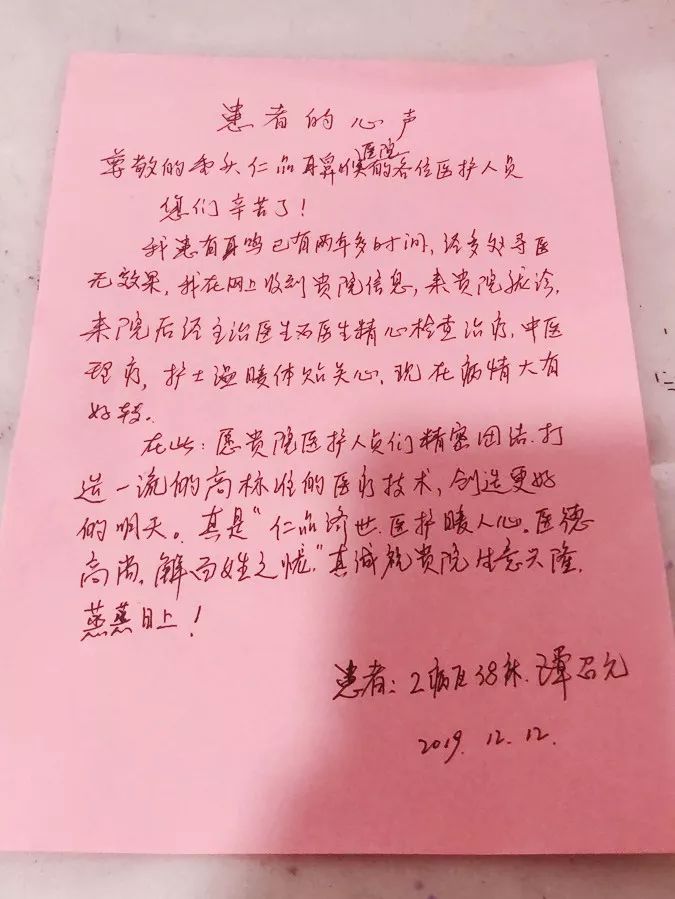 患者的心声
尊敬的重庆仁品耳鼻喉医院的各位医护人员
您们辛苦了!
我患有耳鸣已有两年多时间,经多处寻医
无效果,我在网上收到贵院信息,来贵院就诊,
来院后经主治医生石医生精心检查治疗,中医
理疗,护士温暖体贴关心,现在病情大有
好转。
在此:愿贵院医护人员们精密团结.打
造一流的高标准的医疗技术,创造更好
的明天。真是“仁品济世.医护暖人心。医德
高尚,解百姓之忧,”真诚祝贵院生意兴隆,
蒸蒸日上!
患者:2病区38床.谭
2019.12.12.